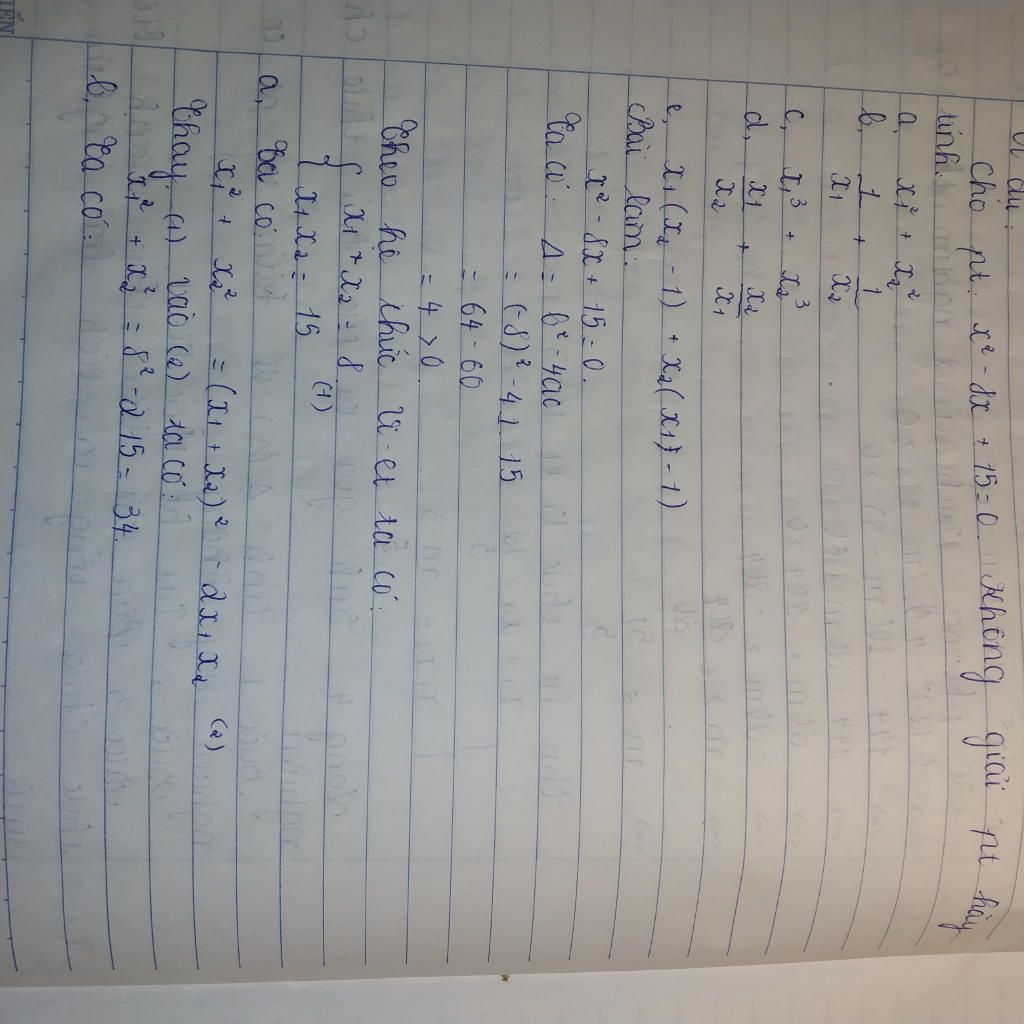 Ví dụ:
Cho pt: x² - 8x + 15 = 0. Không giải pt hãy
tính.
a, x₁² + x₂²
b, 1/x₁ + 1/x₂
c, x₁³ + x₂³
d, x₁/x₂ + x₂/x₁
e, x₁(x₂ - 1) + x₂(x₁ - 1)
Bài làm:
x² - 8x + 15 = 0.
Ta có: Δ = b² - 4ac
= (-8)² - 4.1.15
= 64 - 60
= 4 > 0
Theo hệ thức Vi-et ta có:
{ x₁ + x₂ = 8
x₁x₂ = 15 (1)
a, Ta có:
x₁² + x₂² = (x₁ + x₂)² - 2x₁x₂ (2)
Thay (1) vào (2) ta có:
x₁² + x₂² = 8² - 2.15 = 34.
b, Ta có:
TIẾN